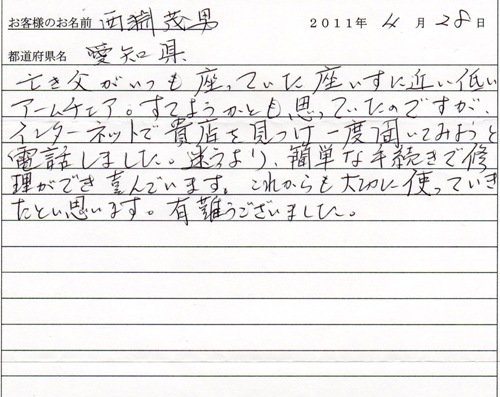 お客様のお名前 西 茂男 2011年 4月 28日
都道府県名 愛知県
亡き父がいつも座っていた座いすに近い低い
アームチェア。すてようかとも思っていたのですが、
インターネットで貴店を見つけ一度聞いてみようと
電話しました。迷うより、簡単な手続きで修
理ができ喜んでいます。これからも大切に使っていき
たいと思います。有難うございました。